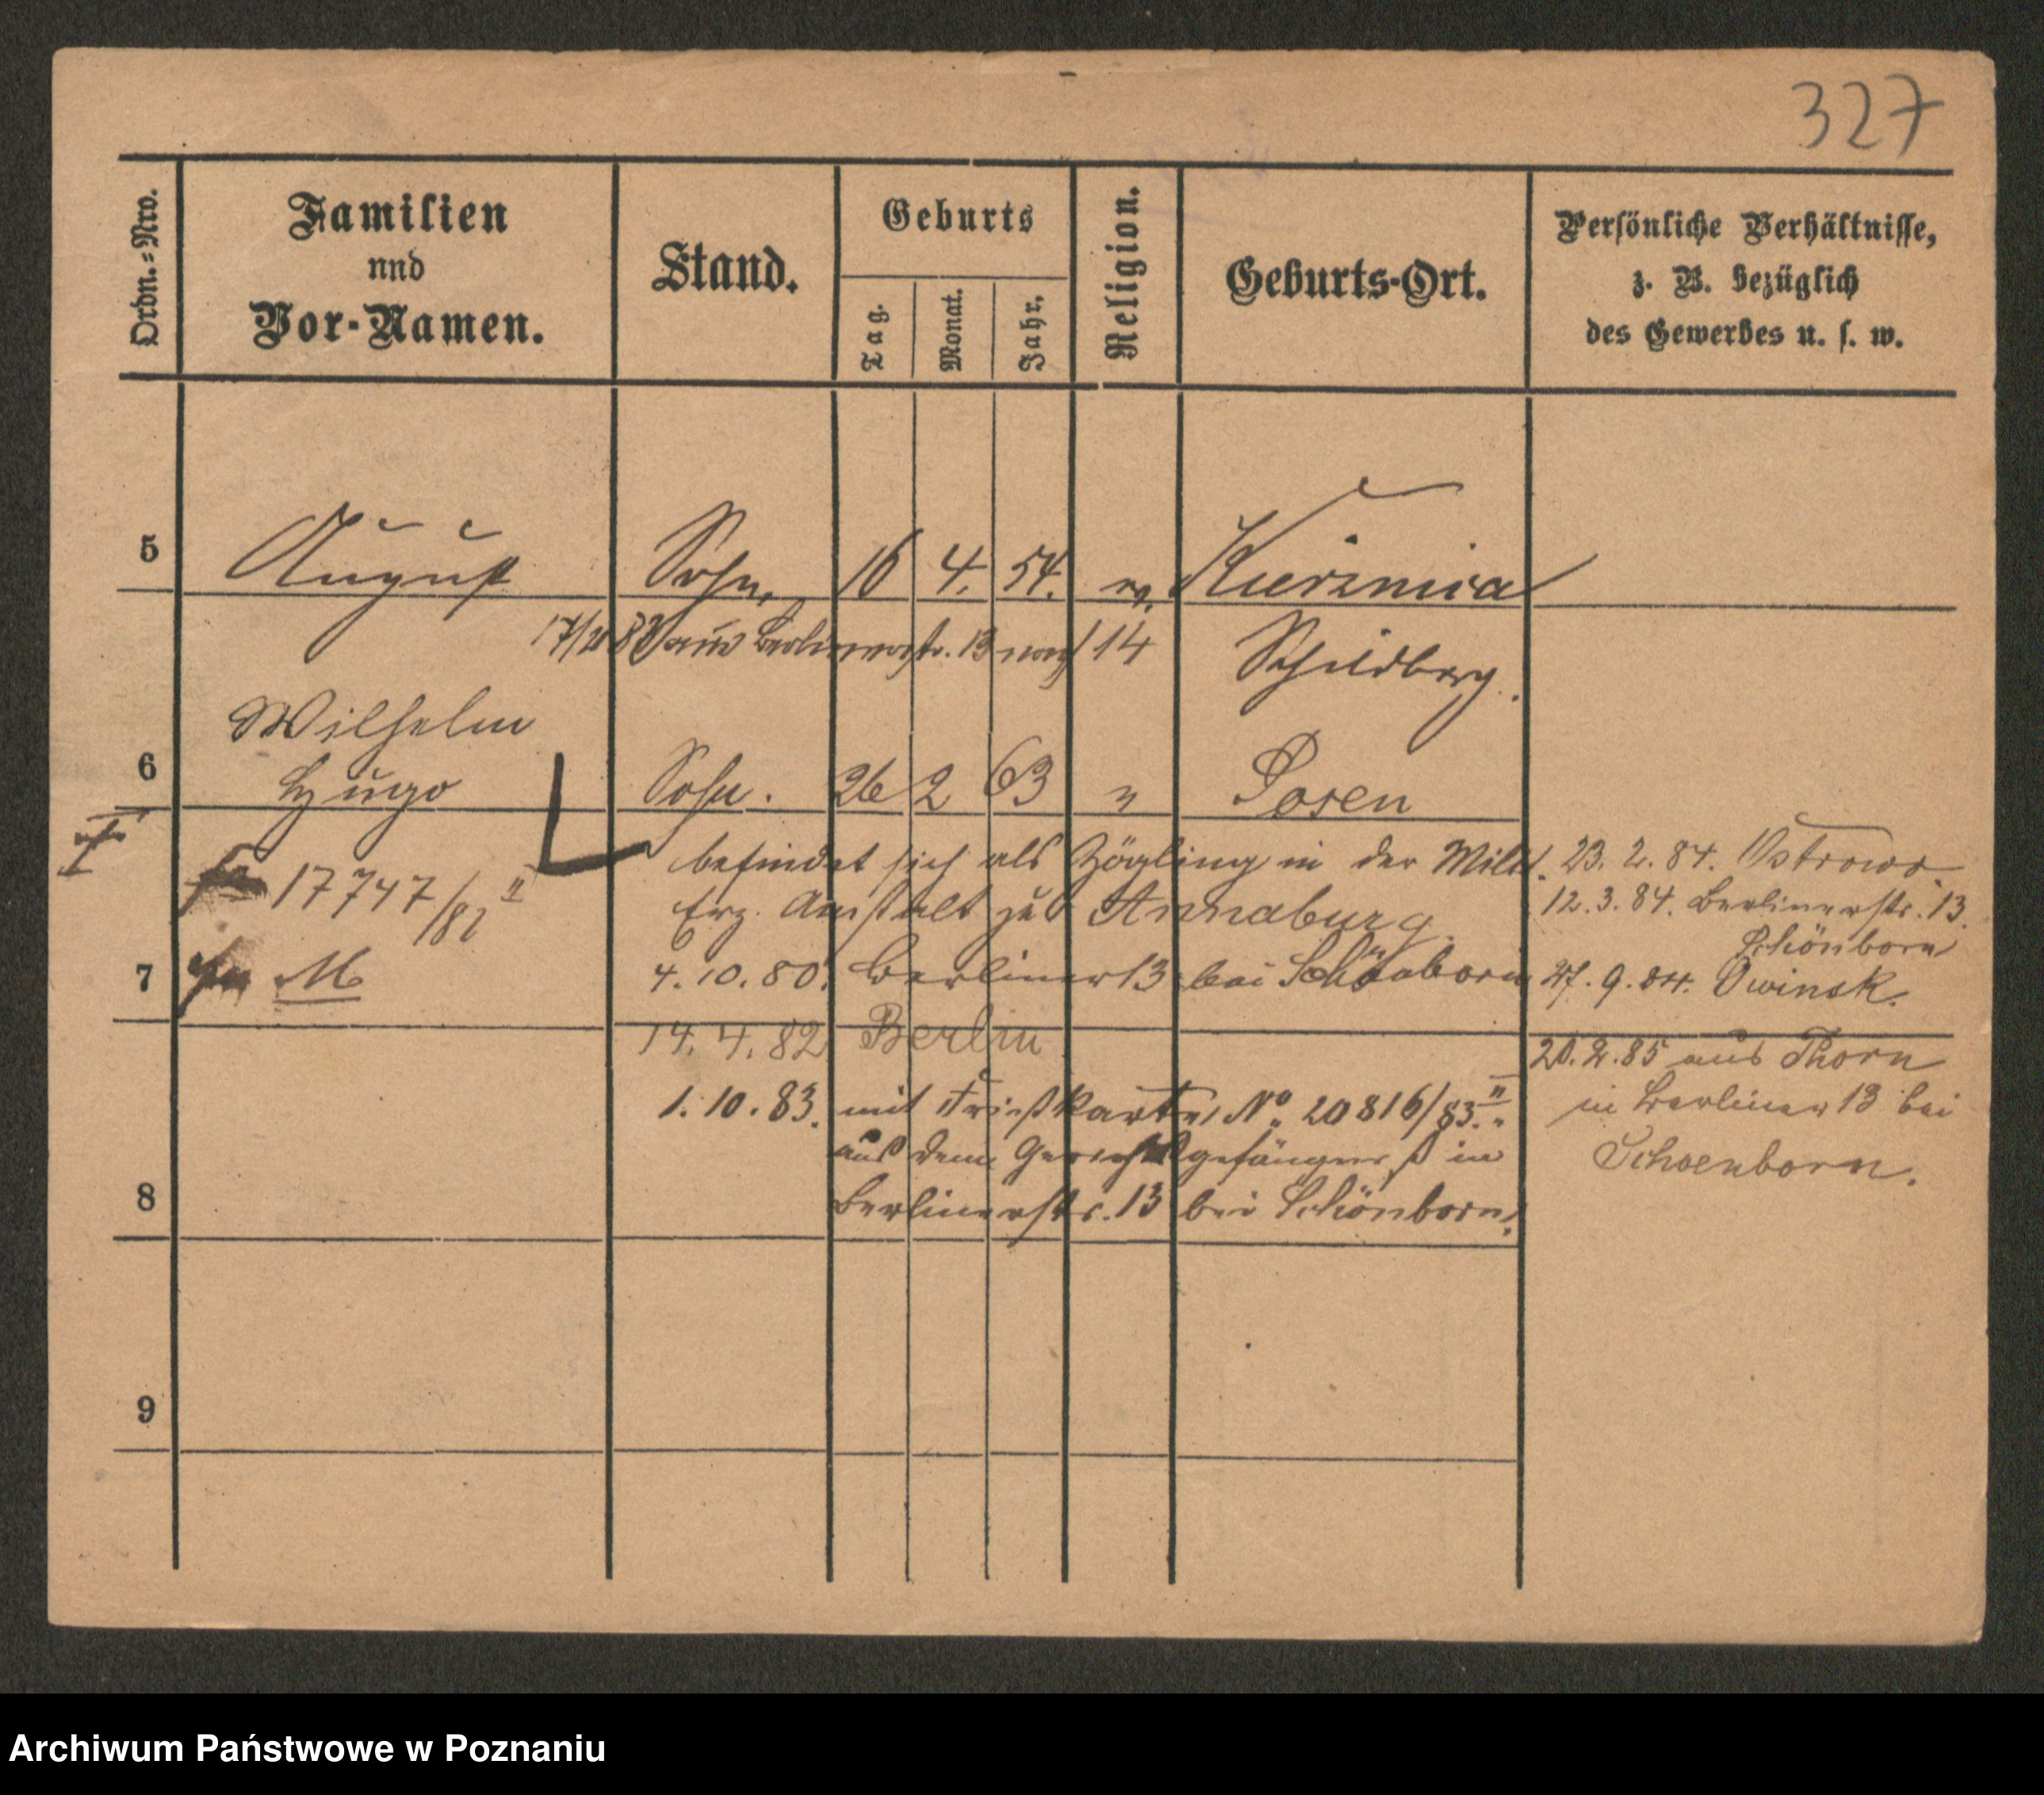 327
Ordn.=Nro.
Familien
nnd
Vor-Namen.
Stand.
Geburts
Tag.
Monat.
Jahr.
Religion.
Geburts-Ort.
Persönliche Verhältnisse,
z. B. bezüglich
des Gewerbes u. s. w.
5 August Sohn, 16 4. 54. ev. Kuźnica
aus Berlinerstr. 13 nach 14
Schildberg.
Wilhelm
6 Hugo Sohn. 26 2 63 " Posen
befindet sich als Zögling in der Milit.
Erz. Anstalt zu Annaburg.
17747/82 II
7 M 4.10.80. Berliner 13 bei Schönborn
14.4.82 Berlin
1.10.83. mit Karte No. 20816/83. II
aus dem Gerichtsgefängniß in
8 Berlinerstr. 13 bei Schönborn.
23.2.84. Ostrowo
12.3.84. Berlinerstr. 13.
Schönborn
27.9.84. Owinsk.
20.2.85 aus Thorn
in Berliner 13 bei
Schoenborn.
9
Archiwum Państwowe w Poznaniu